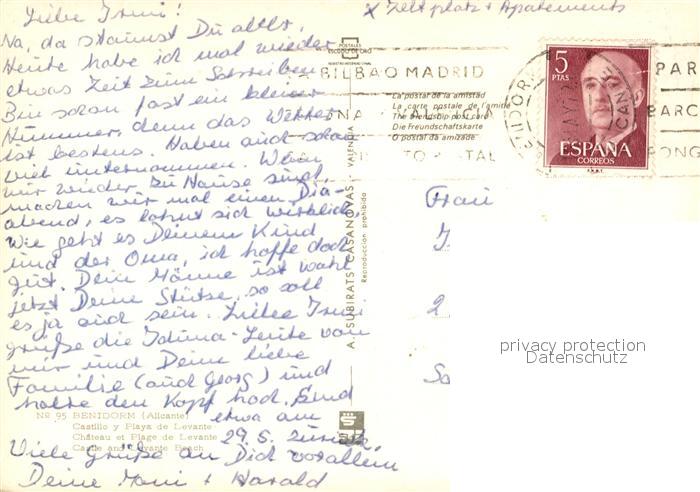 Liebe Irmi!
x Zeltplatz + Apartements
Na, da staunst Du aber,
Heute habe ich mal wieder
etwas Zeit zum Schreiben
Bin schon fast ein kleiner
Hummer, denn das Wetter
ist bestens. Haben auch schon
viel unternommen. Wenn
wir wieder zu Hause sind,
machen wir mal einen Dia-
abend, es lohnt sich wirklich.
Wie geht es Deinem Kind
und der Oma, ich hoffe doch
gut. Dein Männe ist wohl
jetzt Deine Stütze, so soll
es ja auch sein. Liebe Irmi
grüße die Iduna-Leute von
mir und Deine liebe
Familie (auch Georg) und
halte den Kopf hoch. Sind
etwa am
29.5. zurück.
Viele Grüße an Dich vor allem
Deine Moni + Harald
POSTALES
ESCUDO DE ORO
REGISTRO INTERNACIONAL
BILBAO MADRID
La postal de la amistad
La carte postale de l'amitié
The friendship post card
Die Freundschaftskarte
O postal da amizade
5
PTAS
ESPAÑA
CORREOS
F.N.M.T.
PAR
BARC
CONG
A. SUBIRATS CASANOVAS - VALENCIA
Reproducción prohibida
Frau
I
2
So
privacy protection
Datenschutz
Nº 95 BENIDORM (Alicante)
Castillo y Playa de Levante
Château et Plage de Levante
Castle and Levante Beach